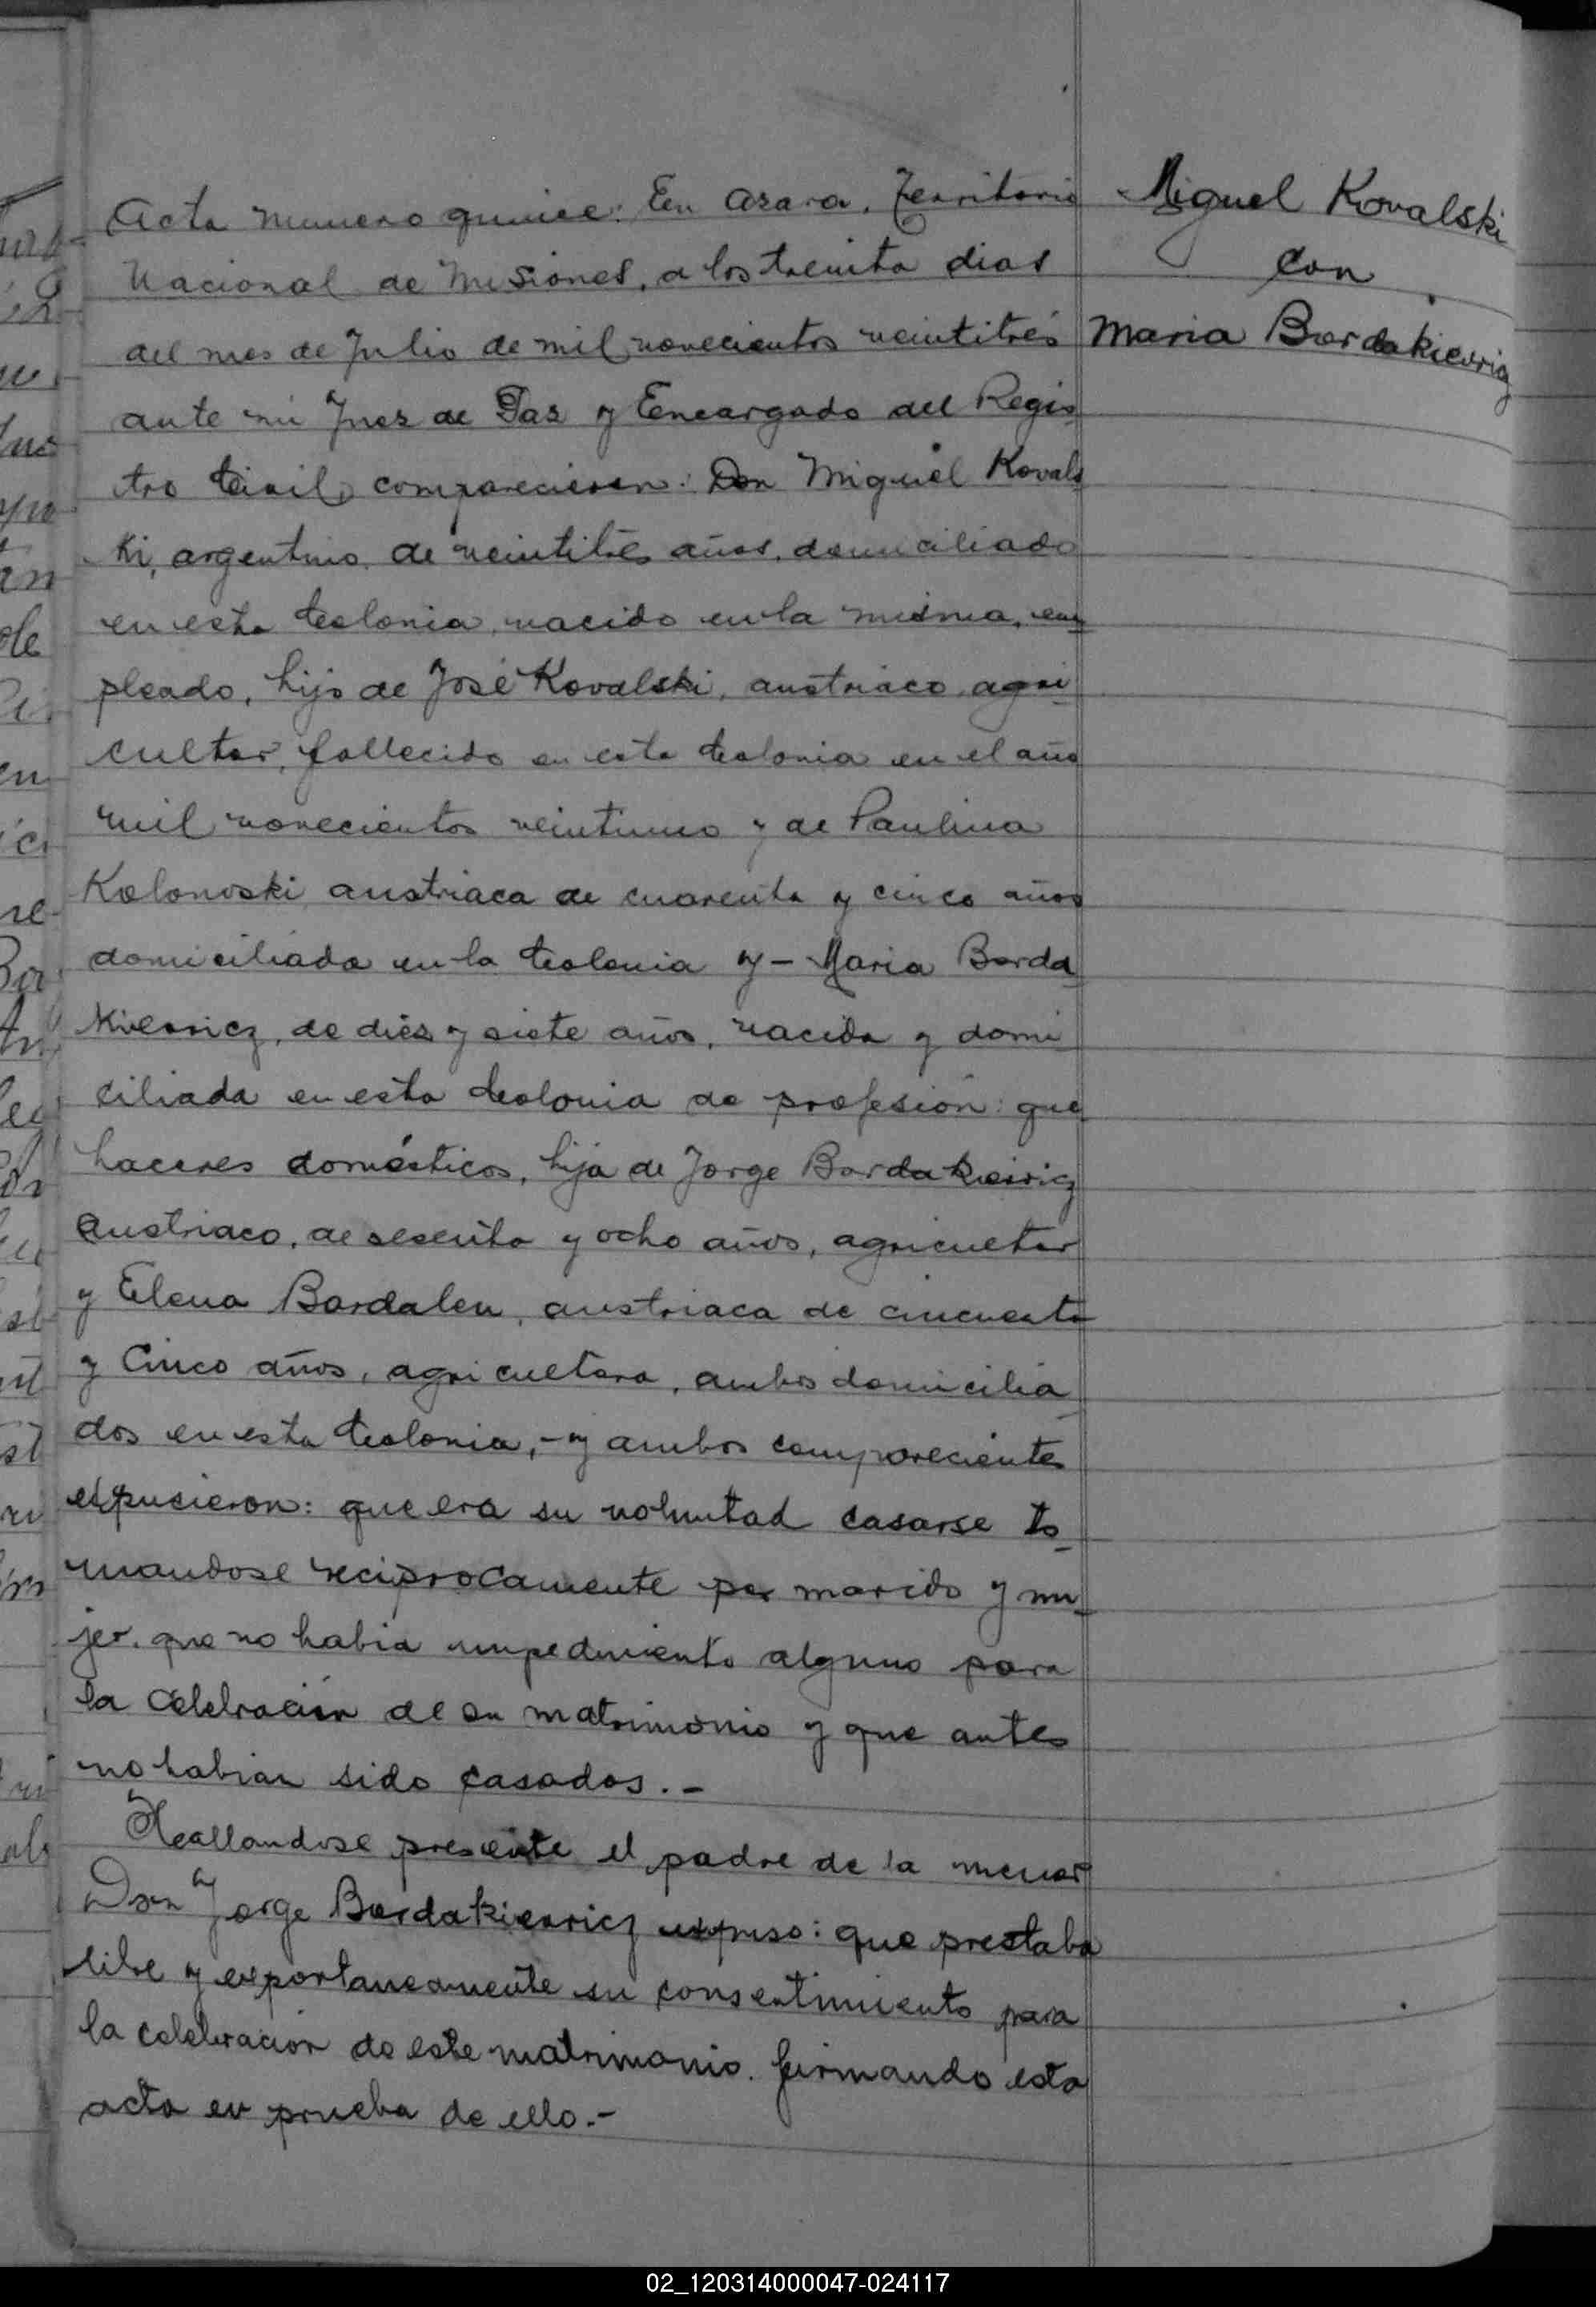 Acta numero quince: En Azara, Territorio
Nacional de Misiones, a los treinta dias
del mes de Julio de mil novecientos veintitrés
ante mi Juez de Paz y Encargado del Regis
tro Civil, comparecieron: Don Miguel Kovals
ki, argentino, de veintitrés años, domiciliado
en esta Colonia, nacido en la misma, em
pleado, hijo de José Kovalski, austriaco, agri
cultor, fallecido en esta Colonia en el año
mil novecientos veintiuno y de Paulina
Kolonoski austriaca de cuarenta y cinco años
domiciliada en la Colonia y - Maria Borda
kiewicz, de diez y siete años, nacida y domi
ciliada en esta Colonia de profesión: que
haceres domésticos, hija de Jorge Bordakiewicz
austriaco, de sesenta y ocho años, agricultor
y Elena Bardalen, austriaca de cincuenta
y Cinco años, agricultora, ambos domicilia
dos en esta Colonia, - y ambos comparecientes
expusieron: que era su voluntad casarse to
mandose reciprocamente por marido y mu
jer. que no habia impedimento alguno para
la celebración de su matrimonio y que antes
no habian sido casados. -
Hallandose presente el padre de la menor
Don Jorge Bordakiewicz expuso: que prestaba
libe y expontaneamente su consentimiento para
la celebración de este matrimonio. firmando esta
acta en prueba de ello. -
Miguel Kovalski
con
Maria Bordakiewicz
02_120314000047-024117